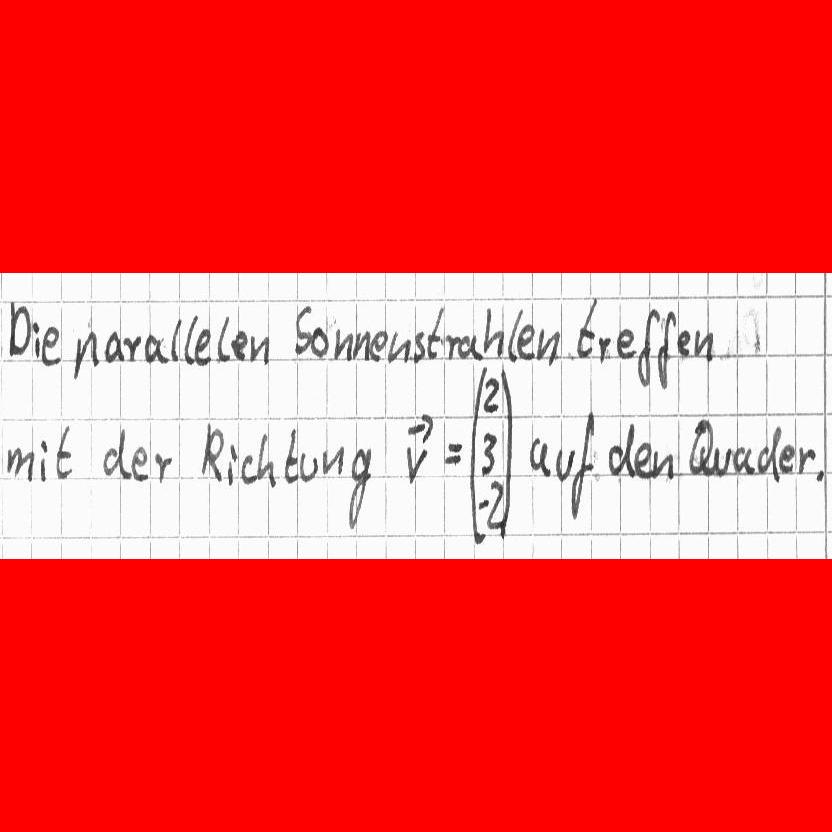 Die parallelen Sonnenstrahlen treffen
mit der Richtung $\vec{v} = \begin{pmatrix} 2 \\ 3 \\ -2 \end{pmatrix}$ auf den Quader.